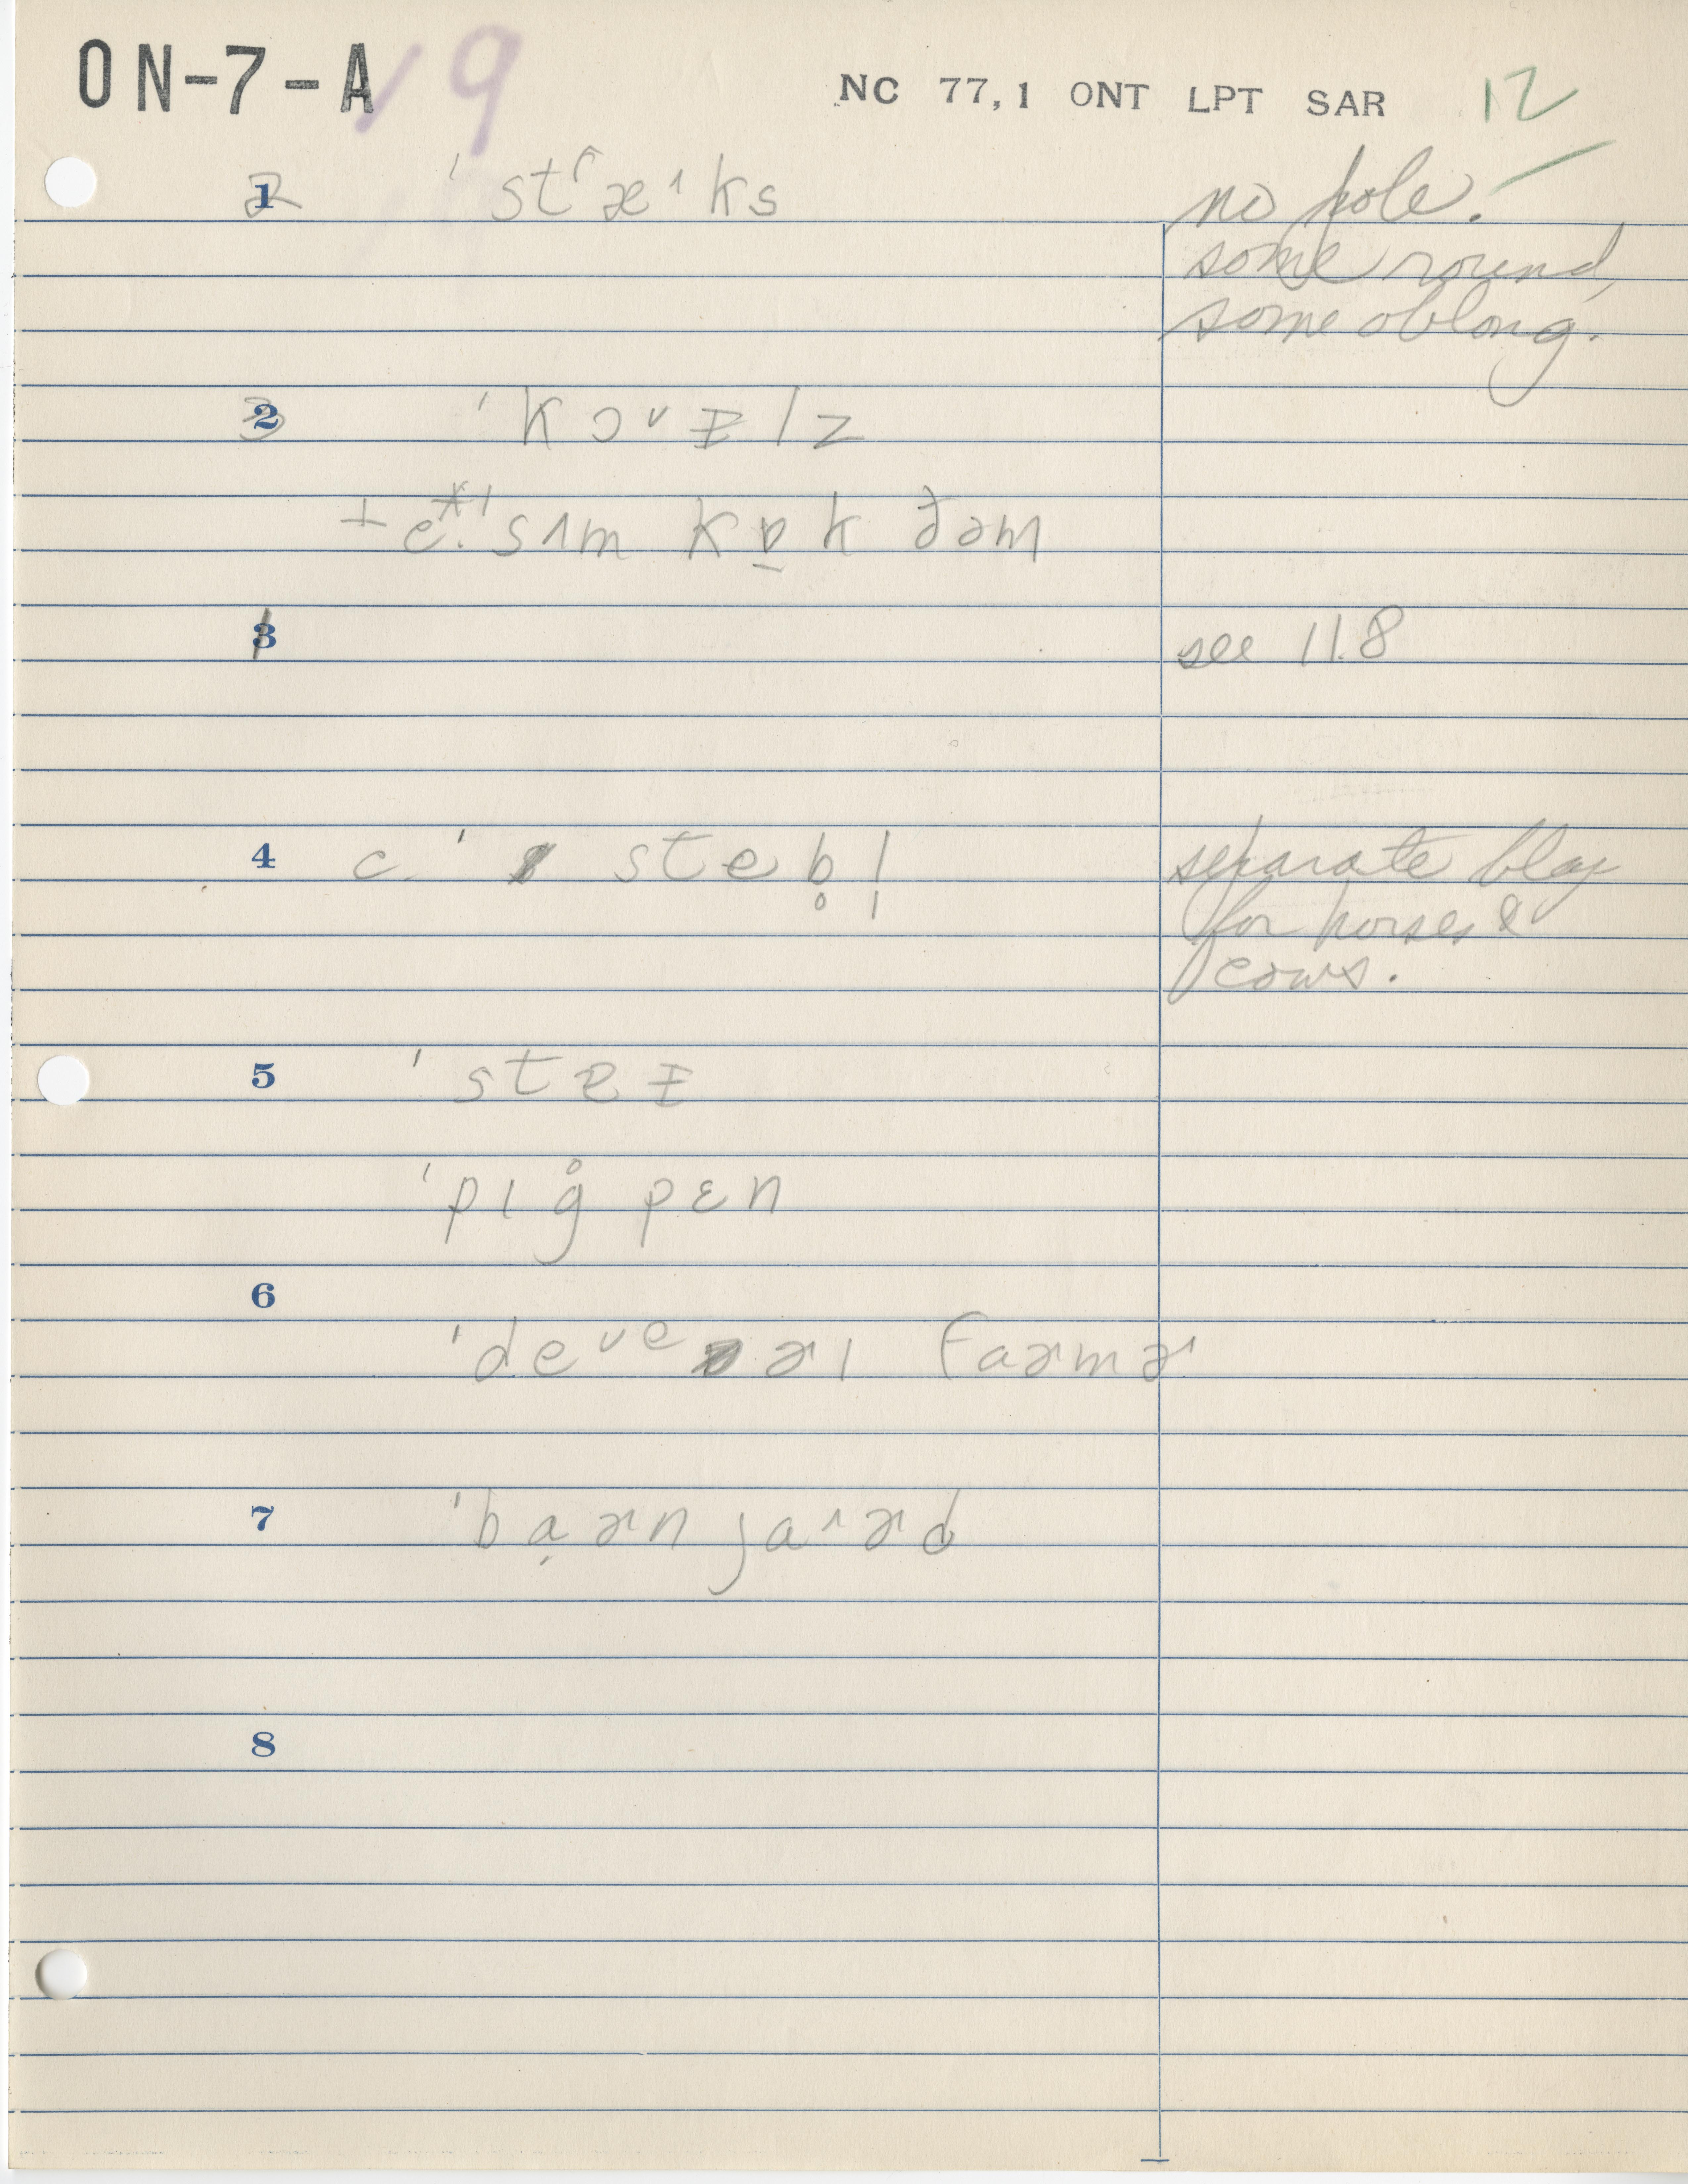 ON-7-A √ 9 NC 77,1 ONT LPT SAR 12
1 2 ˈstʻæ˄ks no pole.
some round,
some oblong.
2 3 ˈkɔ˅ɪlz
+ e.*ˈsʌm kɒ̠k ðəm
3 1 see 11.8
4 c. ˈsteb̥l̩ separate
for horses &
cows.
5 ˈstɐɪ
ˈpɪg̊ pɛn
6
ˈde˅ᵉɚɪ faɚmɚ
7 ˈbạɚn ja˄ɚd
8